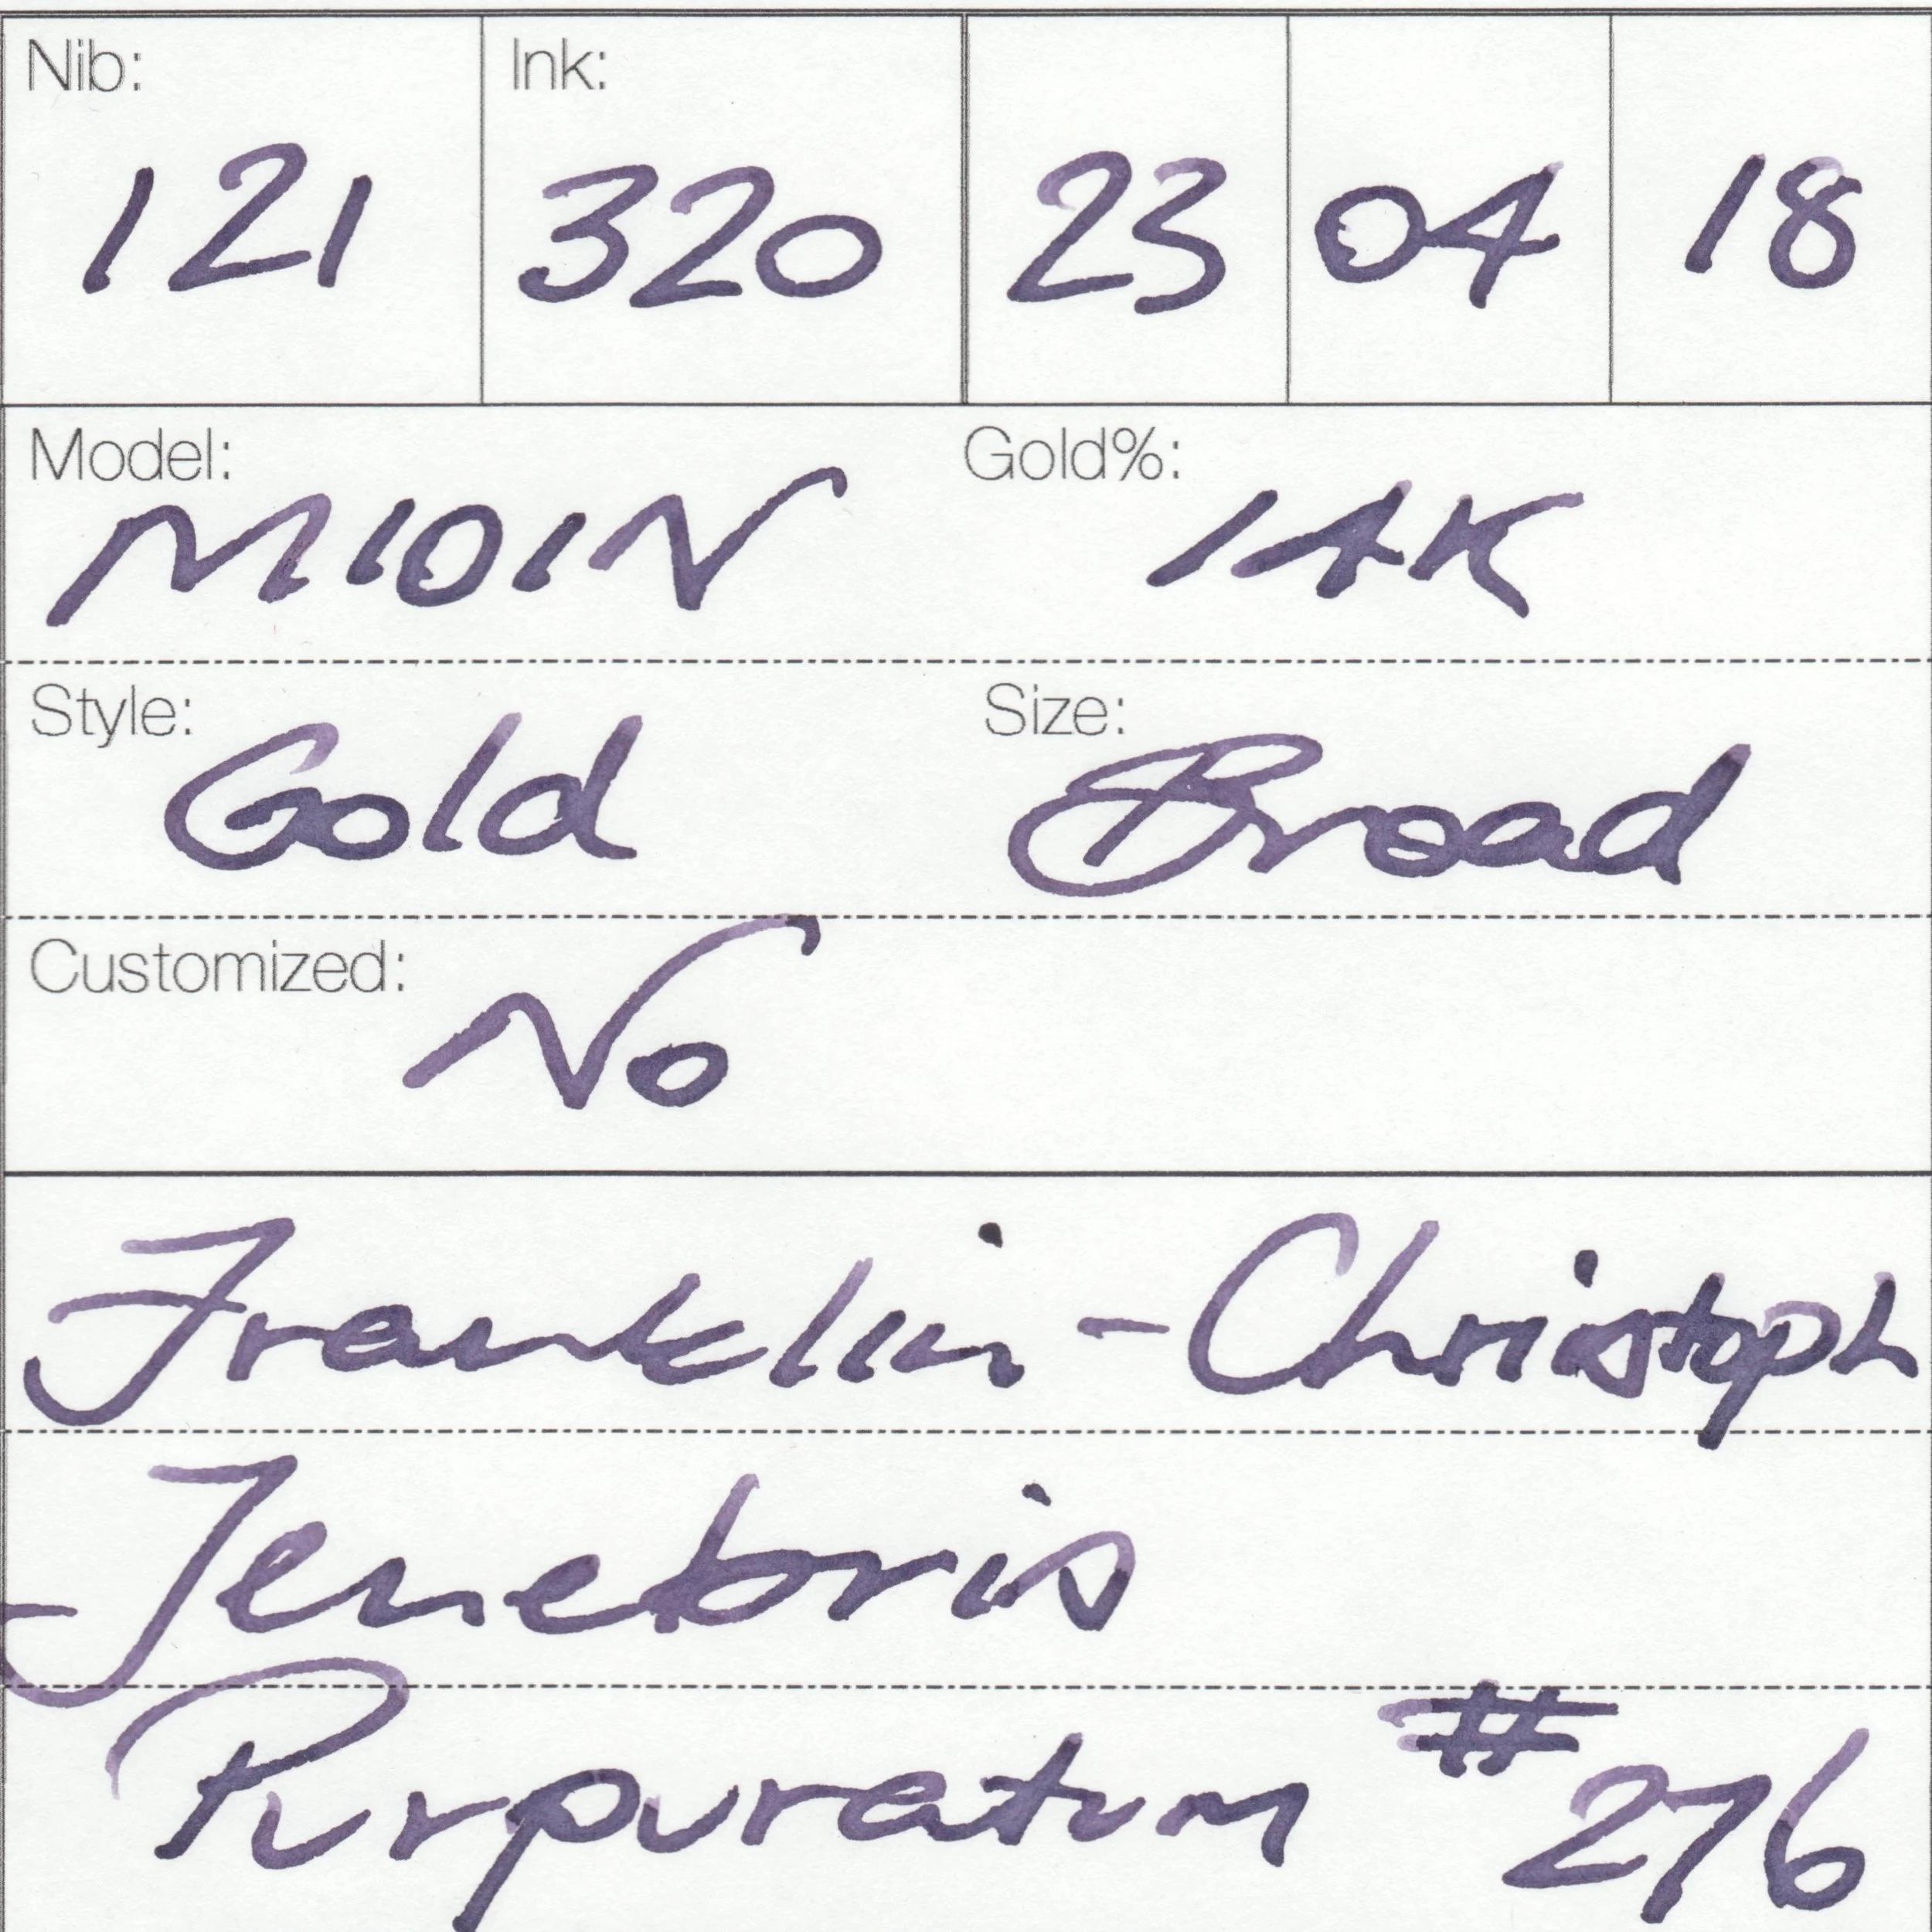 Nib: Ink:
121 320 23 04 18
Model: Gold%:
M101N 14K
Style: Size:
Gold Broad
Customized:
No
Franklin-Christoph
Tenebris
Purpuratum #276